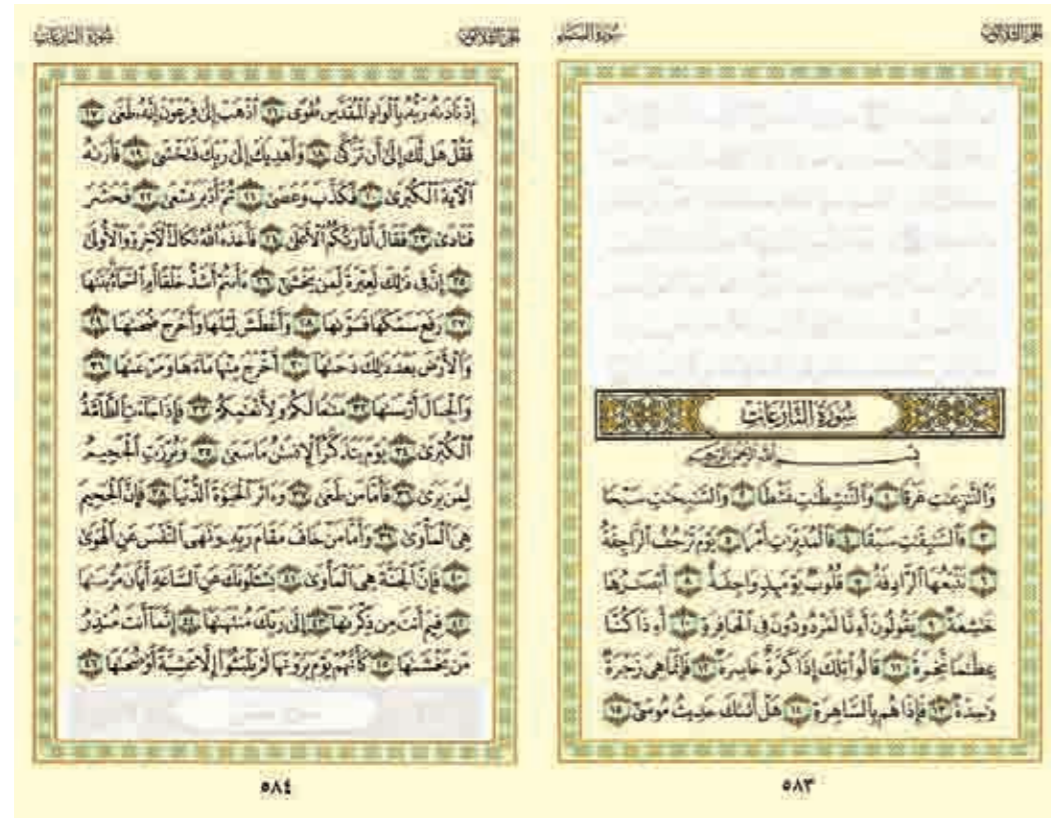 الجزء الثلاثون
سورة النبإ
سورة النازعات
بسم الله الرحمن الرحيم
وَٱلنَّٰزِعَٰتِ غَرْقًا ١ وَٱلنَّٰشِطَٰتِ نَشْطًا ٢ وَٱلسَّٰبِحَٰتِ سَبْحًا
٣ فَٱلسَّٰبِقَٰتِ سَبْقًا ٤ فَٱلْمُدَبِّرَٰتِ أَمْرًا ٥ يَوْمَ تَرْجُفُ ٱلرَّاجِفَةُ
٦ تَتْبَعُهَا ٱلرَّادِفَةُ ٧ قُلُوبٌ يَوْمَئِذٍ وَاجِفَةٌ ٨ أَبْصَٰرُهَا
خَٰشِعَةٌ ٩ يَقُولُونَ أَءِنَّا لَمَرْدُودُونَ فِى ٱلْحَافِرَةِ ١٠ أَءِذَا كُنَّا
عِظَٰمًا نَّخِرَةً ١١ قَالُوا۟ تِلْكَ إِذًا كَرَّةٌ خَاسِرَةٌ ١٢ فَإِنَّمَا هِىَ زَجْرَةٌ
وَٰحِدَةٌ ١٣ فَإِذَا هُم بِٱلسَّاهِرَةِ ١٤ هَلْ أَتَىٰكَ حَدِيثُ مُوسَىٰٓ ١٥
٥٨٣
الجزء الثلاثون
سورة النازعات
إِذْ نَادَىٰهُ رَبُّهُۥ بِٱلْوَادِ ٱلْمُقَدَّسِ طُوًى ١٦ ٱذْهَبْ إِلَىٰ فِرْعَوْنَ إِنَّهُۥ طَغَىٰ ١٧
فَقُلْ هَل لَّكَ إِلَىٰٓ أَن تَزَكَّىٰ ١٨ وَأَهْدِيَكَ إِلَىٰ رَبِّكَ فَتَخْشَىٰ ١٩ فَأَرَىٰهُ
ٱلْءَايَةَ ٱلْكُبْرَىٰ ٢٠ فَكَذَّبَ وَعَصَىٰ ٢١ ثُمَّ أَدْبَرَ يَسْعَىٰ ٢٢ فَحَشَرَ
فَنَادَىٰ ٢٣ فَقَالَ أَنَا۠ رَبُّكُمُ ٱلْأَعْلَىٰ ٢٤ فَأَخَذَهُ ٱللَّهُ نَكَالَ ٱلْءَاخِرَةِ وَٱلْأُولَىٰٓ
٢٥ إِنَّ فِى ذَٰلِكَ لَعِبْرَةً لِّمَن يَخْشَىٰٓ ٢٦ ءَأَنتُمْ أَشَدُّ خَلْقًا أَمِ ٱلسَّمَآءُ بَنَىٰهَا
٢٧ رَفَعَ سَمْكَهَا فَسَوَّىٰهَا ٢٨ وَأَغْطَشَ لَيْلَهَا وَأَخْرَجَ ضُحَىٰهَا ٢٩
وَٱلْأَرْضَ بَعْدَ ذَٰلِكَ دَحَىٰهَآ ٣٠ أَخْرَجَ مِنْهَا مَآءَهَا وَمَرْعَىٰهَا ٣١
وَٱلْجِبَالَ أَرْسَىٰهَا ٣٢ مَتَٰعًا لَّكُمْ وَلِأَنْعَٰمِكُمْ ٣٣ فَإِذَا جَآءَتِ ٱلطَّآمَّةُ
ٱلْكُبْرَىٰ ٣٤ يَوْمَ يَتَذَكَّرُ ٱلْإِنسَٰنُ مَا سَعَىٰ ٣٥ وَبُرِّزَتِ ٱلْجَحِيمُ
لِمَن يَرَىٰ ٣٦ فَأَمَّا مَن طَغَىٰ ٣٧ وَءَاثَرَ ٱلْحَيَوٰةَ ٱلدُّنْيَا ٣٨ فَإِنَّ ٱلْجَحِيمَ
هِىَ ٱلْمَأْوَىٰ ٣٩ وَأَمَّا مَنْ خَافَ مَقَامَ رَبِّهِۦ وَنَهَى ٱلنَّفْسَ عَنِ ٱلْهَوَىٰ
٤٠ فَإِنَّ ٱلْجَنَّةَ هِىَ ٱلْمَأْوَىٰ ٤١ يَسْـَٔلُونَكَ عَنِ ٱلسَّاعَةِ أَيَّانَ مُرْسَىٰهَا
٤٢ فِيمَ أَنتَ مِن ذِكْرَىٰهَآ ٤٣ إِلَىٰ رَبِّكَ مُنتَهَىٰهَآ ٤٤ إِنَّمَآ أَنتَ مُنذِرُ
مَن يَخْشَىٰهَا ٤٥ كَأَنَّهُمْ يَوْمَ يَرَوْنَهَا لَمْ يَلْبَثُوٓا۟ إِلَّا عَشِيَّةً أَوْ ضُحَىٰهَا ٤٦
٥٨٤